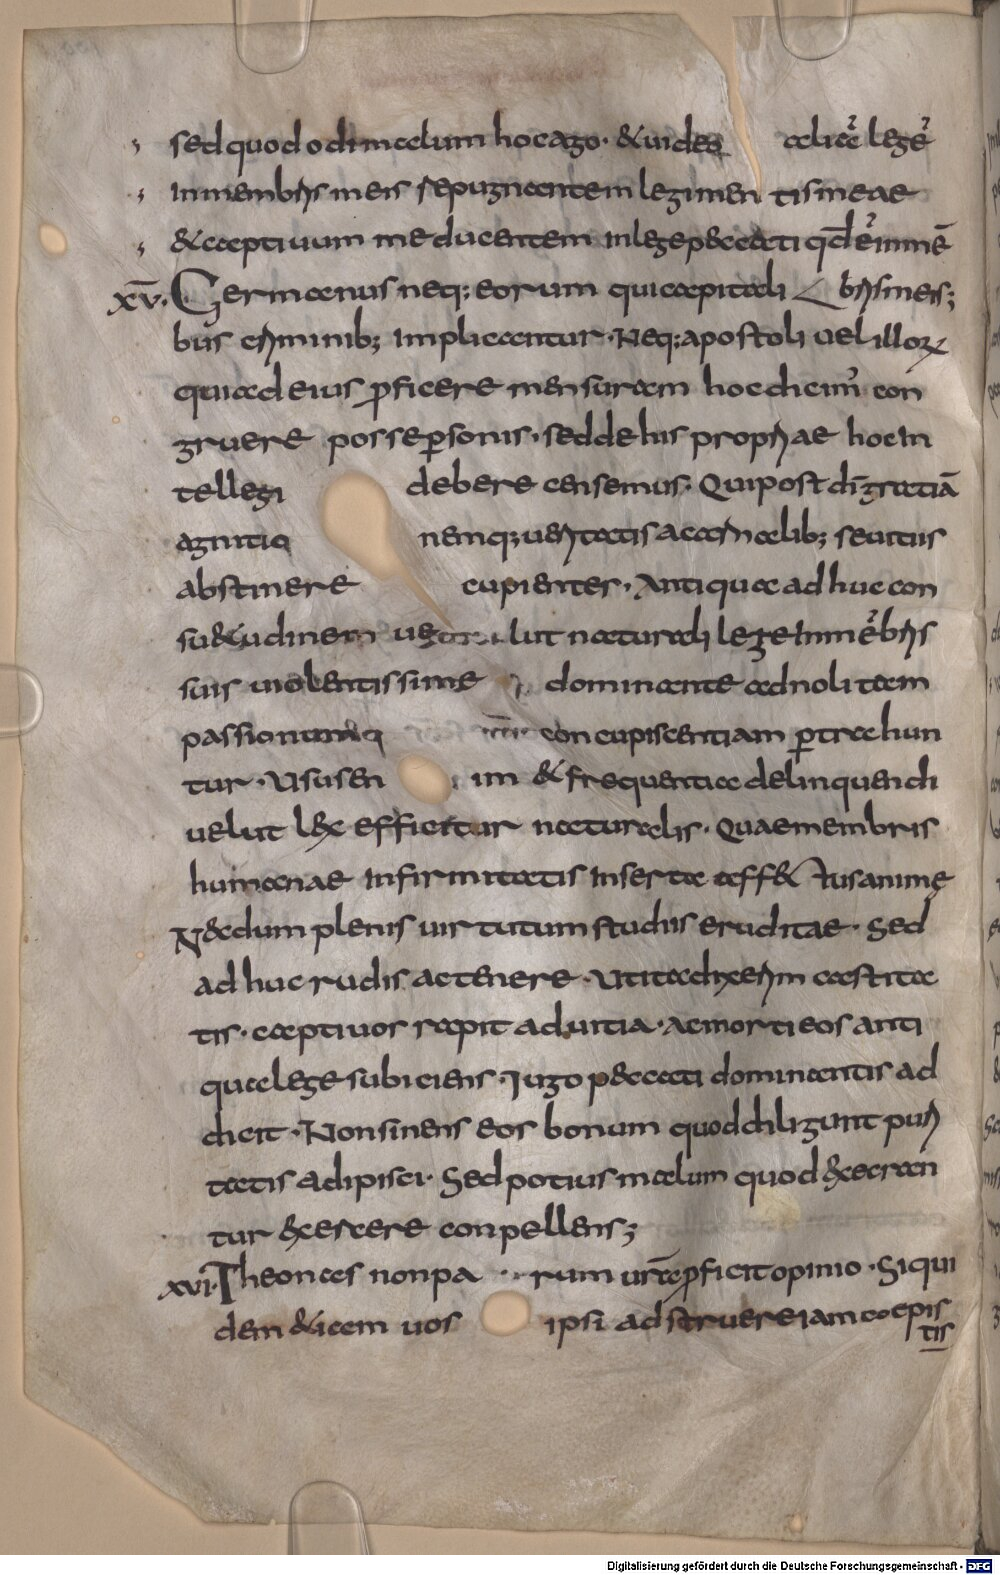 sed quod odi malum hoc ago · & uideo aliā legē
in membris meis repugnantem legi men tis meae
& captiuum me ducentem in lege peccati qd̄ ē in mē
xv. Germanus neq; eorum qui capitali bris meis;
bus criminib; implicantur · Neq; apostoli uel illoꝝ
qui ad eius ꝓficere mensuram hoc dicim̓ con
gruere posse ꝑsonis · sed de his propriae hoc in
tellegi debere censemus · Qui post dī gratiā
agnitio nemq; ueritatis a carnalib; se uitiis
abstinere cupientes · Antiqua ad huc con
su&udinem uelut naturali lege in mē bris
suis uiolentissime dominante ad nolitam
passionum concupiscentiam ꝑtrahun
tur · Usus en im & frequentia delinquendi
uelut lex efficitur naturalis · Quae membris
humanae infirmitatis inserta aff& tus animę
N& dum plenis uirtutum studiis eruditae · Sed
ad huc rudis ac tenere · Ut ita dixerim castita
tis · captiuos rapit ad uitia · ac morti eos anti
qua lege subiciens · Iugo peccati dominantis ad
dicit · Non sinens eos bonum quod diligunt puri
tatis adipisci · Sed potius malum quod execran
tur exercere conpellens;
xvi. Theonas non pa rum urā ꝓficit opinio · Siqui
dem &iam uos ipsi adstruere iam coepis
tis
Digitalisierung gefördert durch die Deutsche Forschungsgemeinschaft - DFG